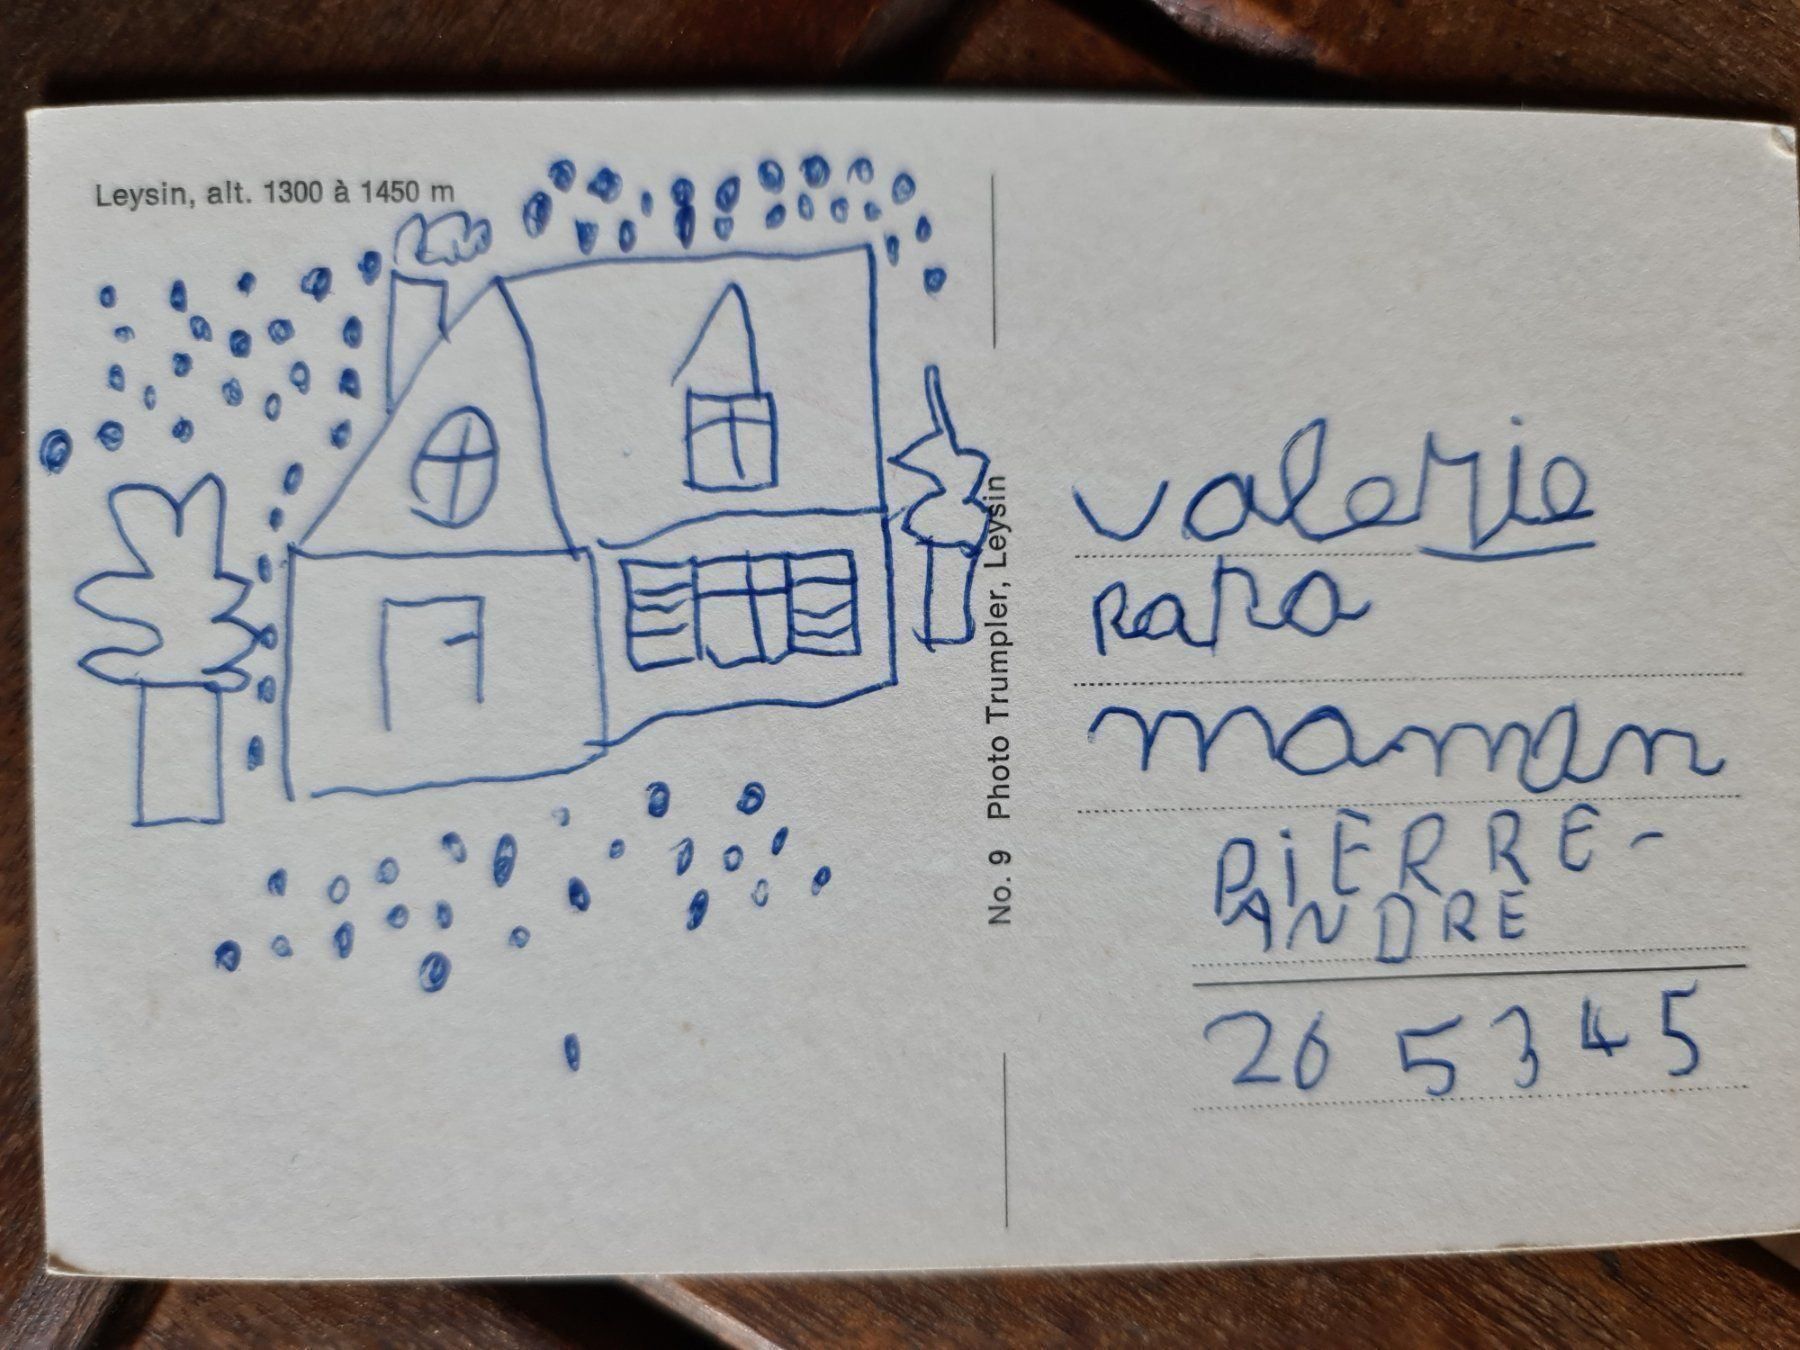 Leysin, alt. 1300 à 1450 m
No. 9 Photo Trumpler, Leysin
valerie
PaPa
maman
PiERRE-
ANDRE
26 5 3 4 5